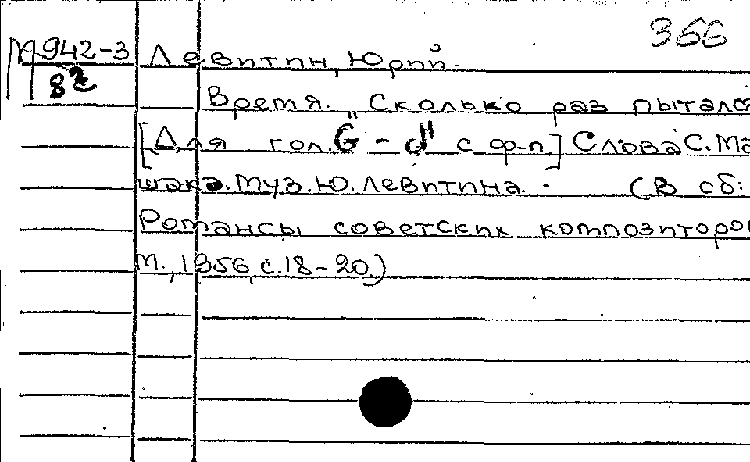 366
М 942-3 Левитин, Юрий.
82
Время. „Сколько раз пытался
[Для гол. G - d" с ф-п.] Слова С. Ма
шака. Муз. Ю. Левитина. (В сб:
Романсы советских композиторо
М., 1956, с. 18-20.)